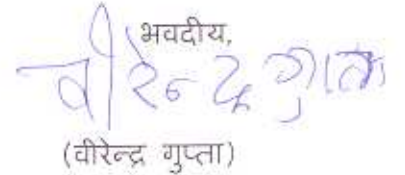 भवदीय,
वीरेन्द्र गुप्ता
(वीरेन्द्र गुप्ता)